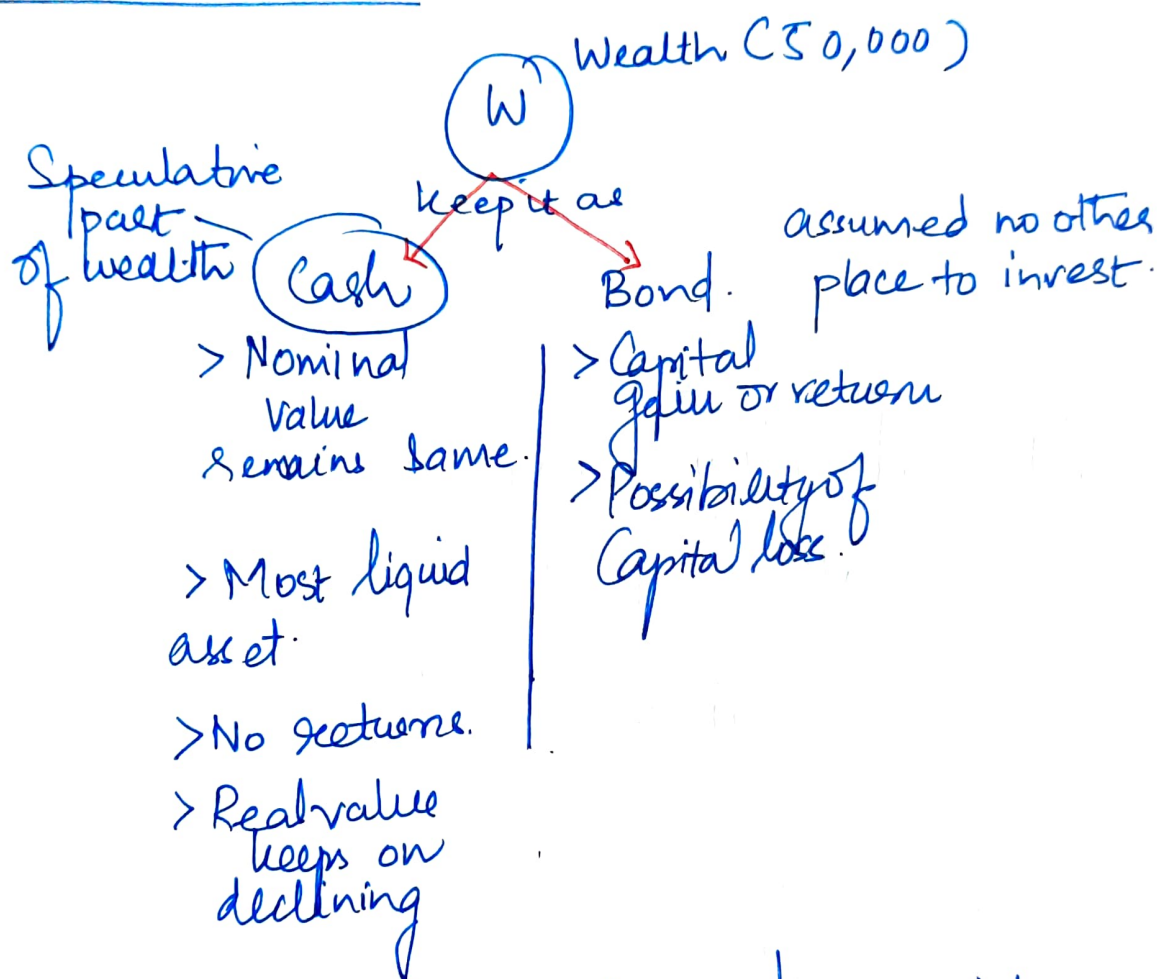 Wealth (50,000)
W
Speculative
part
of wealth
keep it as
Cash
Bond.
assumed no other
place to invest.
> Nominal
value
remains same.
> Most liquid
asset.
> No returns.
> Real value
keeps on
declining
> Capital
gain or return
> Possibility of
Capital loss.